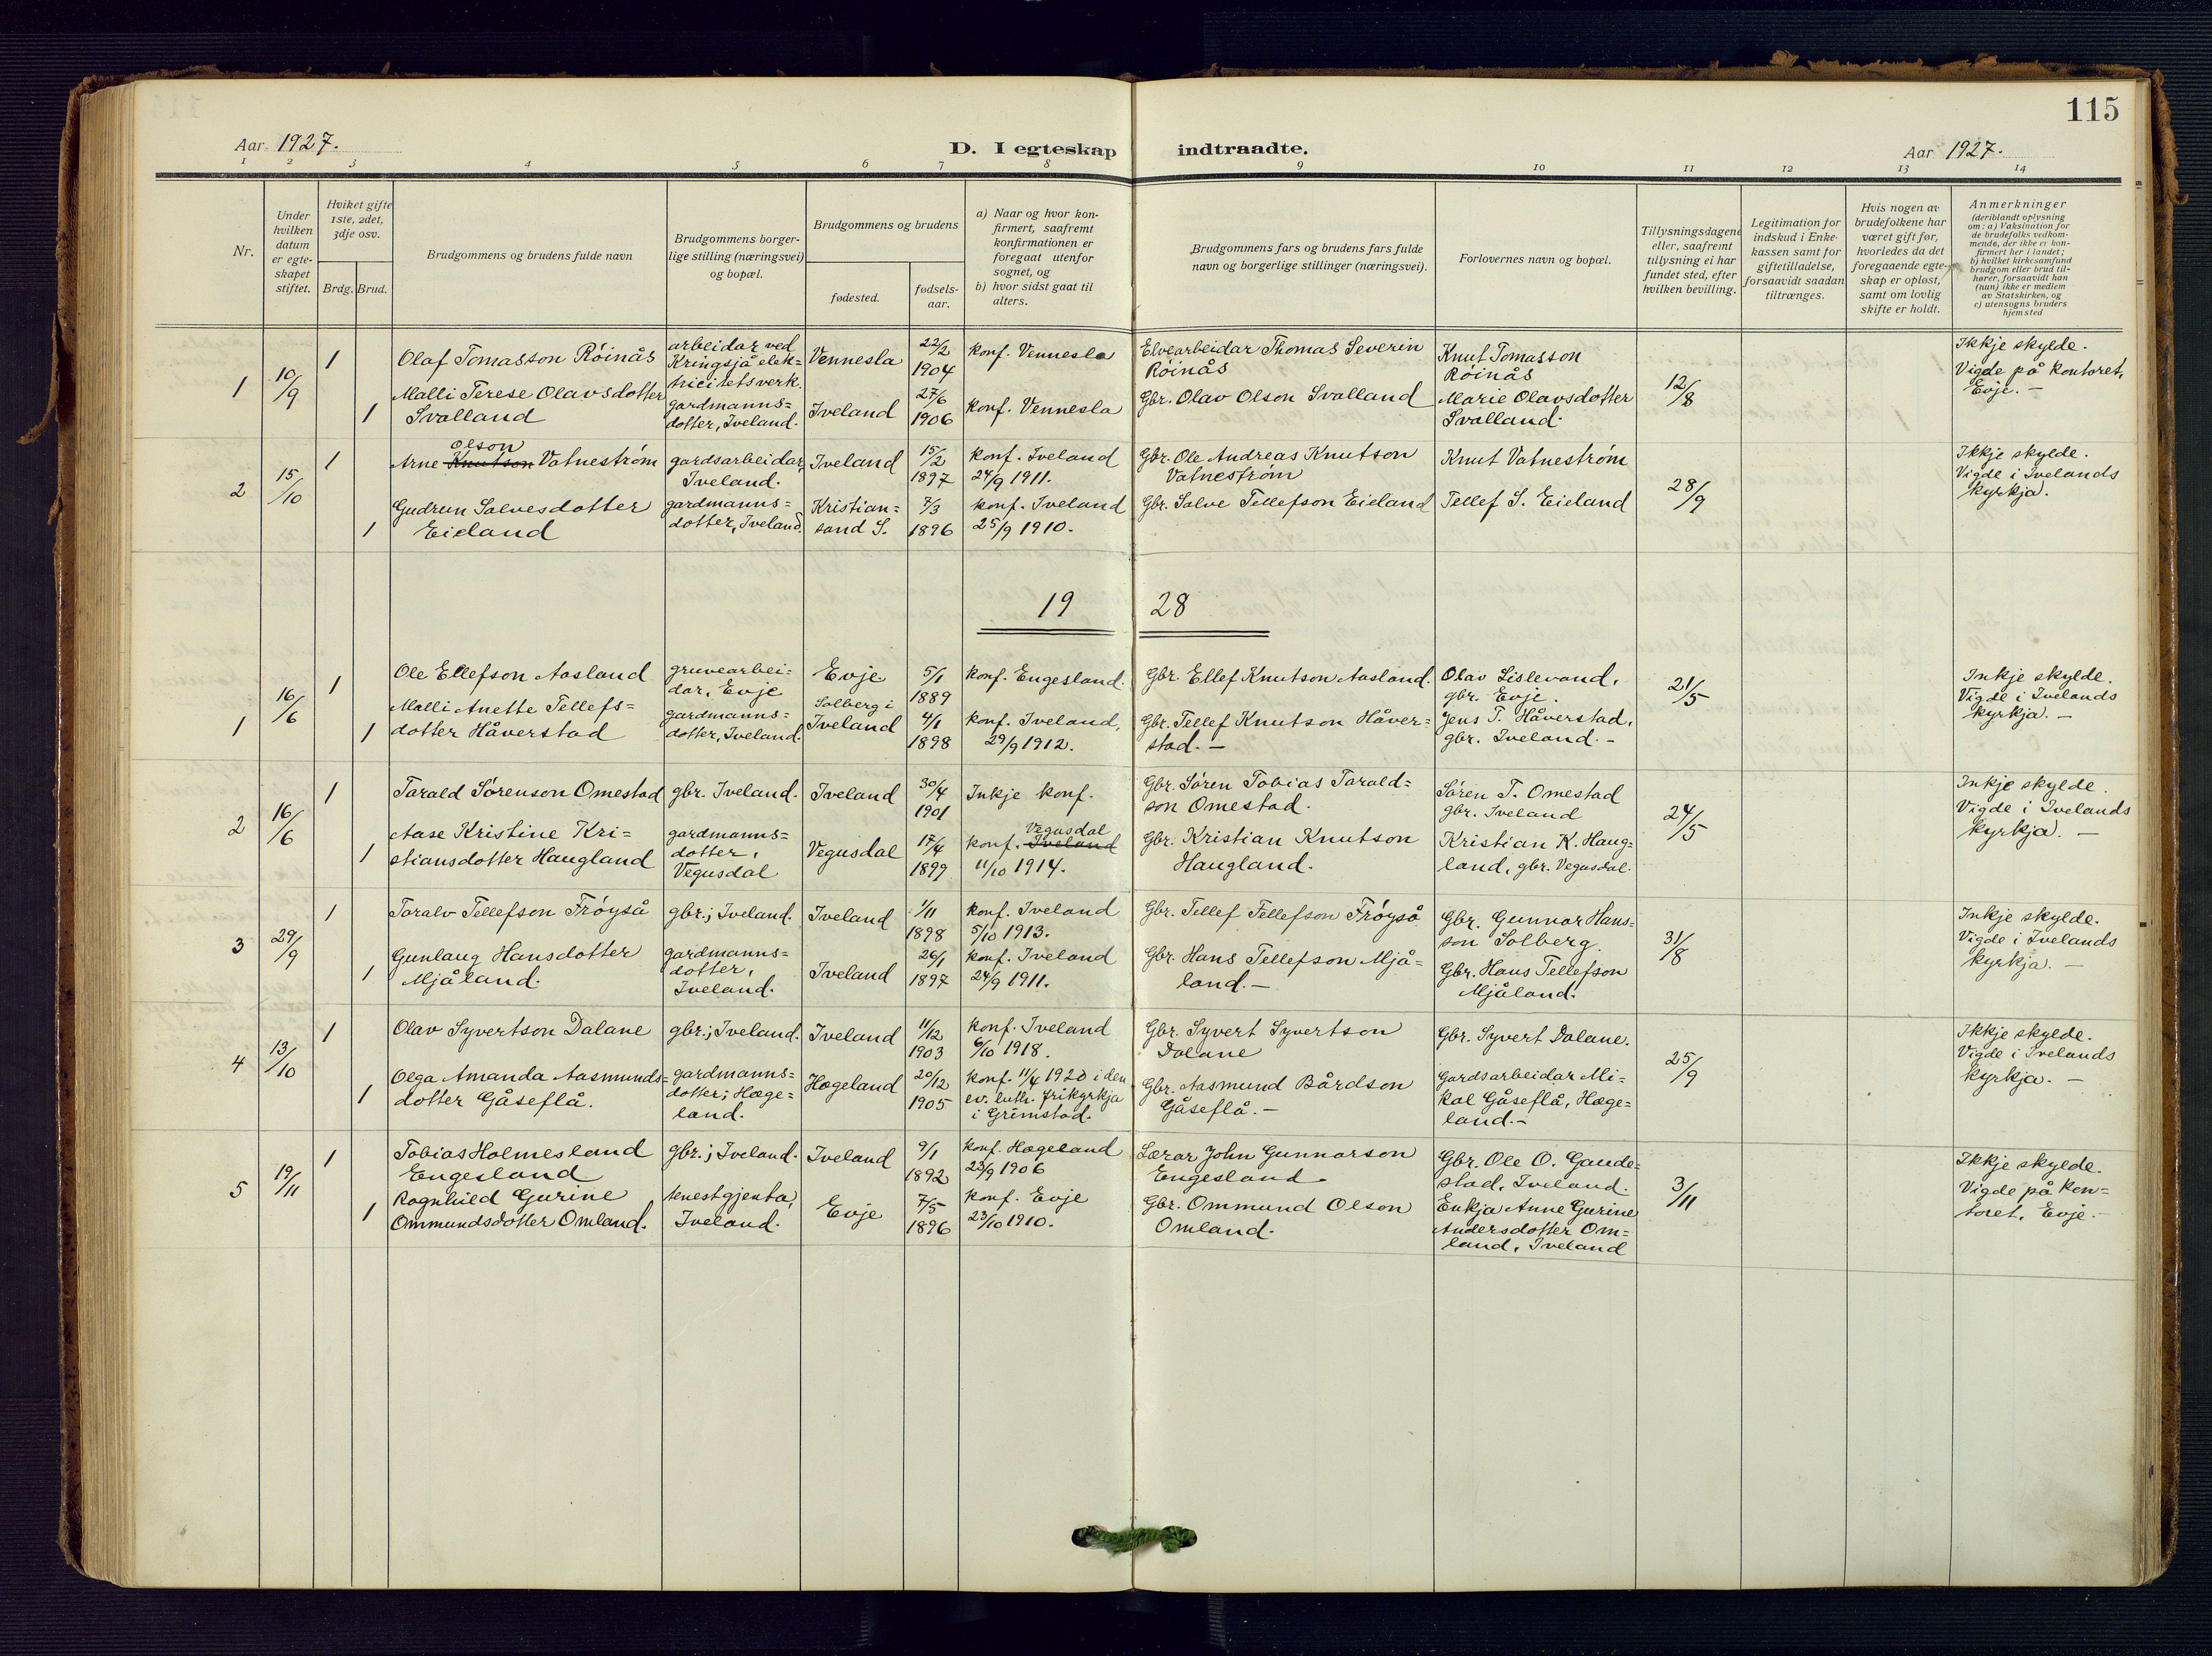 115
Aar 1927.
D. I egteskap indtraadte.
Aar 1927.
1 2 3 4 5 6 7 8 9 10 11 12 13 14
Nr.
Under
hvilken
datum
er egte-
skapet
stiftet.
Hviket gifte
1ste, 2det,
3dje osv.
Brdg. Brud.
Brudgommens og brudens fulde navn
Brudgommens borger-
lige stilling (næringsvei)
og bopæl.
Brudgommens og brudens
fødested.
fødsels-
aar.
a) Naar og hvor kon-
firmert, saafremt
konfirmationen er
foregaat utenfor
sognet, og
b) hvor sidst gaat til
alters.
Brudgommens fars og brudens fars fulde
navn og borgerlige stillinger (næringsvei).
Forlovernes navn og bopæl.
Tillysningsdagene
eller, saafremt
tillysning ei har
fundet sted, efter
hvilken bevilling.
Legitimation for
indskud i Enke-
kassen samt for
giftetilladelse,
forsaavidt saadan
tiltrænges.
Hvis nogen av
brudefolkene har
været gift før,
hvorledes da det
foregaaende egte-
skap er opløst,
samt om lovlig
skifte er holdt.
Anmerkninger
(deriblandt oplysning
om: a) Vaksination for
de brudefolks vedkom-
mende, der ikke er kon-
firmert her i landet;
b) hvilket kirkesamfund
brudgom eller brud til-
hører, forsaavidt han
(hun) ikke er medlem
av Statskirken, og
c) utensogns bruders
hjemsted
1
10/9
1
Olaf Tomasson Röinås
arbeidar ved
Kringsjå elek=
tricitetsverk.
Vennesla
22/2
1904
konf. Vennesla
Elvearbeidar Thomas Severin
Röinås
Knut Tomasson
Röinås
12/8
Ikkje skylde.
Vigde på kontoret,
Evje. –
1
Malli Terese Olavsdotter
Svalland
gardmanns=
dotter, Iveland.
Iveland
27/6
1906
konf. Vennesla
Gbr. Olav Olson Svalland
Marie Olavsdotter
Svalland.
2
15/10
1
Olson
Arne Knutson Vatneström
gardsarbeidar,
Iveland.
Iveland
15/2
1897
konf. Iveland
24/9 1911.
Gbr. Ole Andreas Knutson
Vatneström
Knut Vatneström
28/9
Ikkje skylde.
Vigde i Ivelands
kyrkja.
1
Gudrun Salvesdotter
Eieland
gardmanns=
dotter, Iveland.
Kristian=
sand S.
7/3
1896
konf. Iveland
25/9 1910.
Gbr. Salve Tellefson Eieland
Tellef S. Eieland
19 28
1
16/6
1
Ole Ellefson Aasland
gruvearbei=
dar, Evje
Evje
5/1
1889
konf. Engesland.
Gbr. Ellef Knutson Aasland.
Olav Lislevand,
gbr. Evje.
21/5
Inkje skylde.
Vigde i Ivelands
kyrkja. –
1
Malli Anette Tellefs=
dotter Håverstad
gardmanns=
dotter, Iveland.
Solberg i
Iveland
4/1
1898
konf. Iveland,
29/9 1912.
Gbr. Tellef Knutson Håver=
stad. –
Jens T. Håverstad,
gbr. Iveland. –
2
16/6
1
Tarald Sörenson Omestad
gbr. Iveland.
Iveland
30/4
1901
Inkje konf.
Gbr. Sören Tobias Tarald=
son Omestad.
Sören T. Omestad
gbr. Iveland
24/5
Inkje skylde.
Vigde i Ivelands
kyrkja. –
1
Aase Kristine Kri=
stiansdotter Haugland
gardmanns=
dotter,
Vegusdal
Vegusdal
17/4
1899
Vegusdal
konf. Iveland
11/10 1914.
Gbr. Kristian Knutson
Haugland.
Kristian K. Haug=
land, gbr. Vegusdal.
3
29/9
1
Taralv Tellefson Fröyså
gbr.; Iveland.
Iveland
1/11
1898
konf. Iveland
5/10 1913.
Gbr. Tellef Tellefson Fröyså
Gbr. Gunnar Hans=
son Solberg.
31/8
Inkje skylde.
Vigde i Ivelands
kyrkja. –
1
Gunlaug Hansdotter
Mjåland.
gardmanns=
dotter,
Iveland.
Iveland
26/1
1897
konf. Iveland
24/9 1911.
Gbr. Hans Tellefson Mjå=
land. –
Gbr. Hans Tellefson
Mjåland.
4
13/10
1
Olav Syvertson Dalane
gbr.; Iveland.
Iveland
11/12
1903
konf. Iveland
6/10 1918.
Gbr. Syvert Syvertson
Dalane
Gbr. Syvert Dalane.
25/9
Ikkje skylde.
Vigde i Ivelands
kyrkja. –
1
Olga Amanda Aasmunds=
dotter Gåseflå.
gardmanns=
dotter; Hæge=
land.
Hægeland
20/12
1905
konf. 11/4 1920 i den
ev. luth. frikyrkja
i Grimstad.
Gbr. Aasmund Bårdson
Gåseflå. –
Gardsarbeidar Mi=
kal Gåseflå, Hæge=
land. –
5
19/11
1
Tobias Holmesland
Engesland
gbr.; Iveland.
Iveland
9/1
1892
konf. Hægeland
23/9 1906
Lærar John Gunnarson
Engesland.
Gbr. Ole O. Gaude=
stad, Iveland.
3/11
Ikkje skylde.
Vigde på kon=
toret, Evje. –
1
Ragnhild Gurine
Ommundsdotter Omland.
tenestgjenta,
Iveland.
Evje
7/5
1896
konf. Evje
23/10 1910.
Gbr. Ommund Olson
Omland.
Enkja Anne Gurine
Andersdotter Om=
land, Iveland